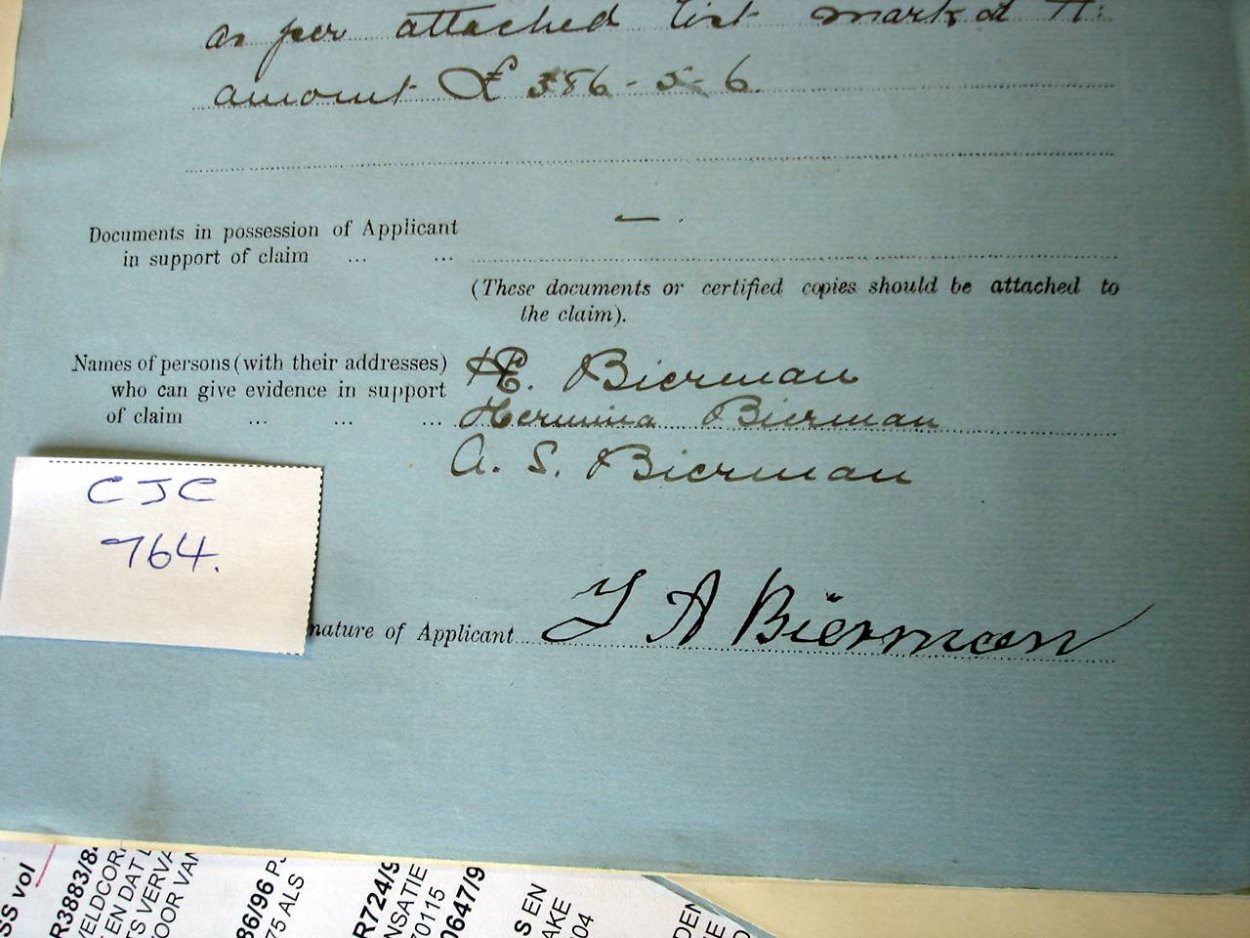 as per attached list marked A:
amount £ 386-5-6.
Documents in possession of Applicant
in support of claim ... ...
(These documents or certified copies should be attached to
the claim).
Names of persons (with their addresses)
who can give evidence in support
of claim ... ... ...
H.E. Bierman
Hermina Bierman
A. S. Bierman
CJC
764.
nature of Applicant
A Bierman
SS vol
R3883/8
VELDCOR
EN DAT
TS VERVA
OOR VAN
86/96
75 ALS
R724/9
NSATIE
70115
0647/9
S EN
AKE
04
DEN